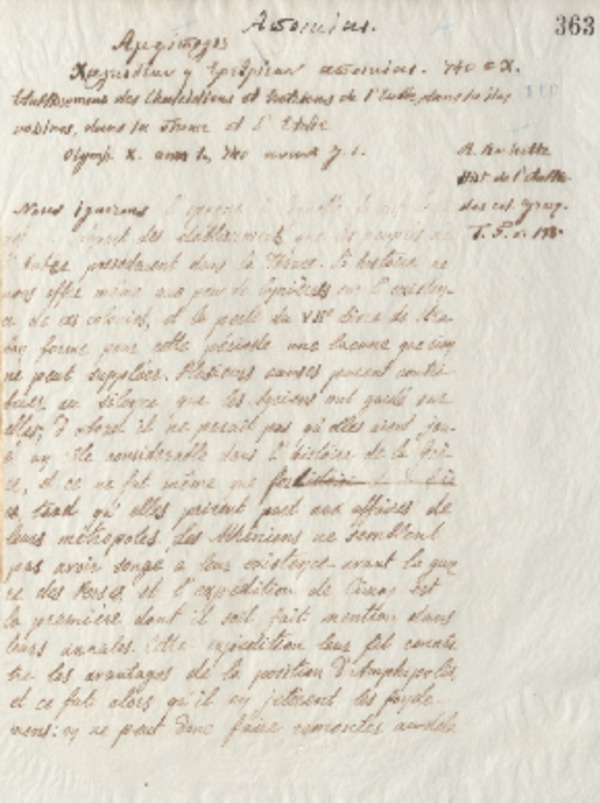 363
Établissement des Chalcidiens et Erétriens de l'Eubée, dans les îles
voisines, dans la Thrace et l'
Olymp. X. ann. 1, 740 avant J. C.
Hist. de l'
des col. Grecq.
Nous ignorons l'époque
des établissements que les peuples de
l'Eubée possédaient dans la Thrace. L'histoire ne
nous offre même que peu de lumières sur l'existen-
ce de ces colonies, et la perte du VIIe livre de Stra-
bon forme pour cette période une lacune que rien
ne peut suppléer. Plusieurs causes peuvent contri-
buer au silence que les anciens ont gardé sur
elles; d'abord il ne paraît pas qu'elles aient jou-
é un rôle considérable dans l'histoire de la Grè-
ce, et ce ne fut même que
tard qu'elles prirent part aux affaires de
leurs métropoles. Les Athéniens ne semblent
pas avoir songé à leur existence avant la guer
re des Perses et l'expédition de Cimon est
la première dont il soit fait mention dans
leurs annales. Cette expédition leur fit connaî
tre les avantages de la position d'Amphipolis,
et ce fut alors qu'ils en jetèrent les fonde-
mens: on ne peut donc faire remonter au-delà